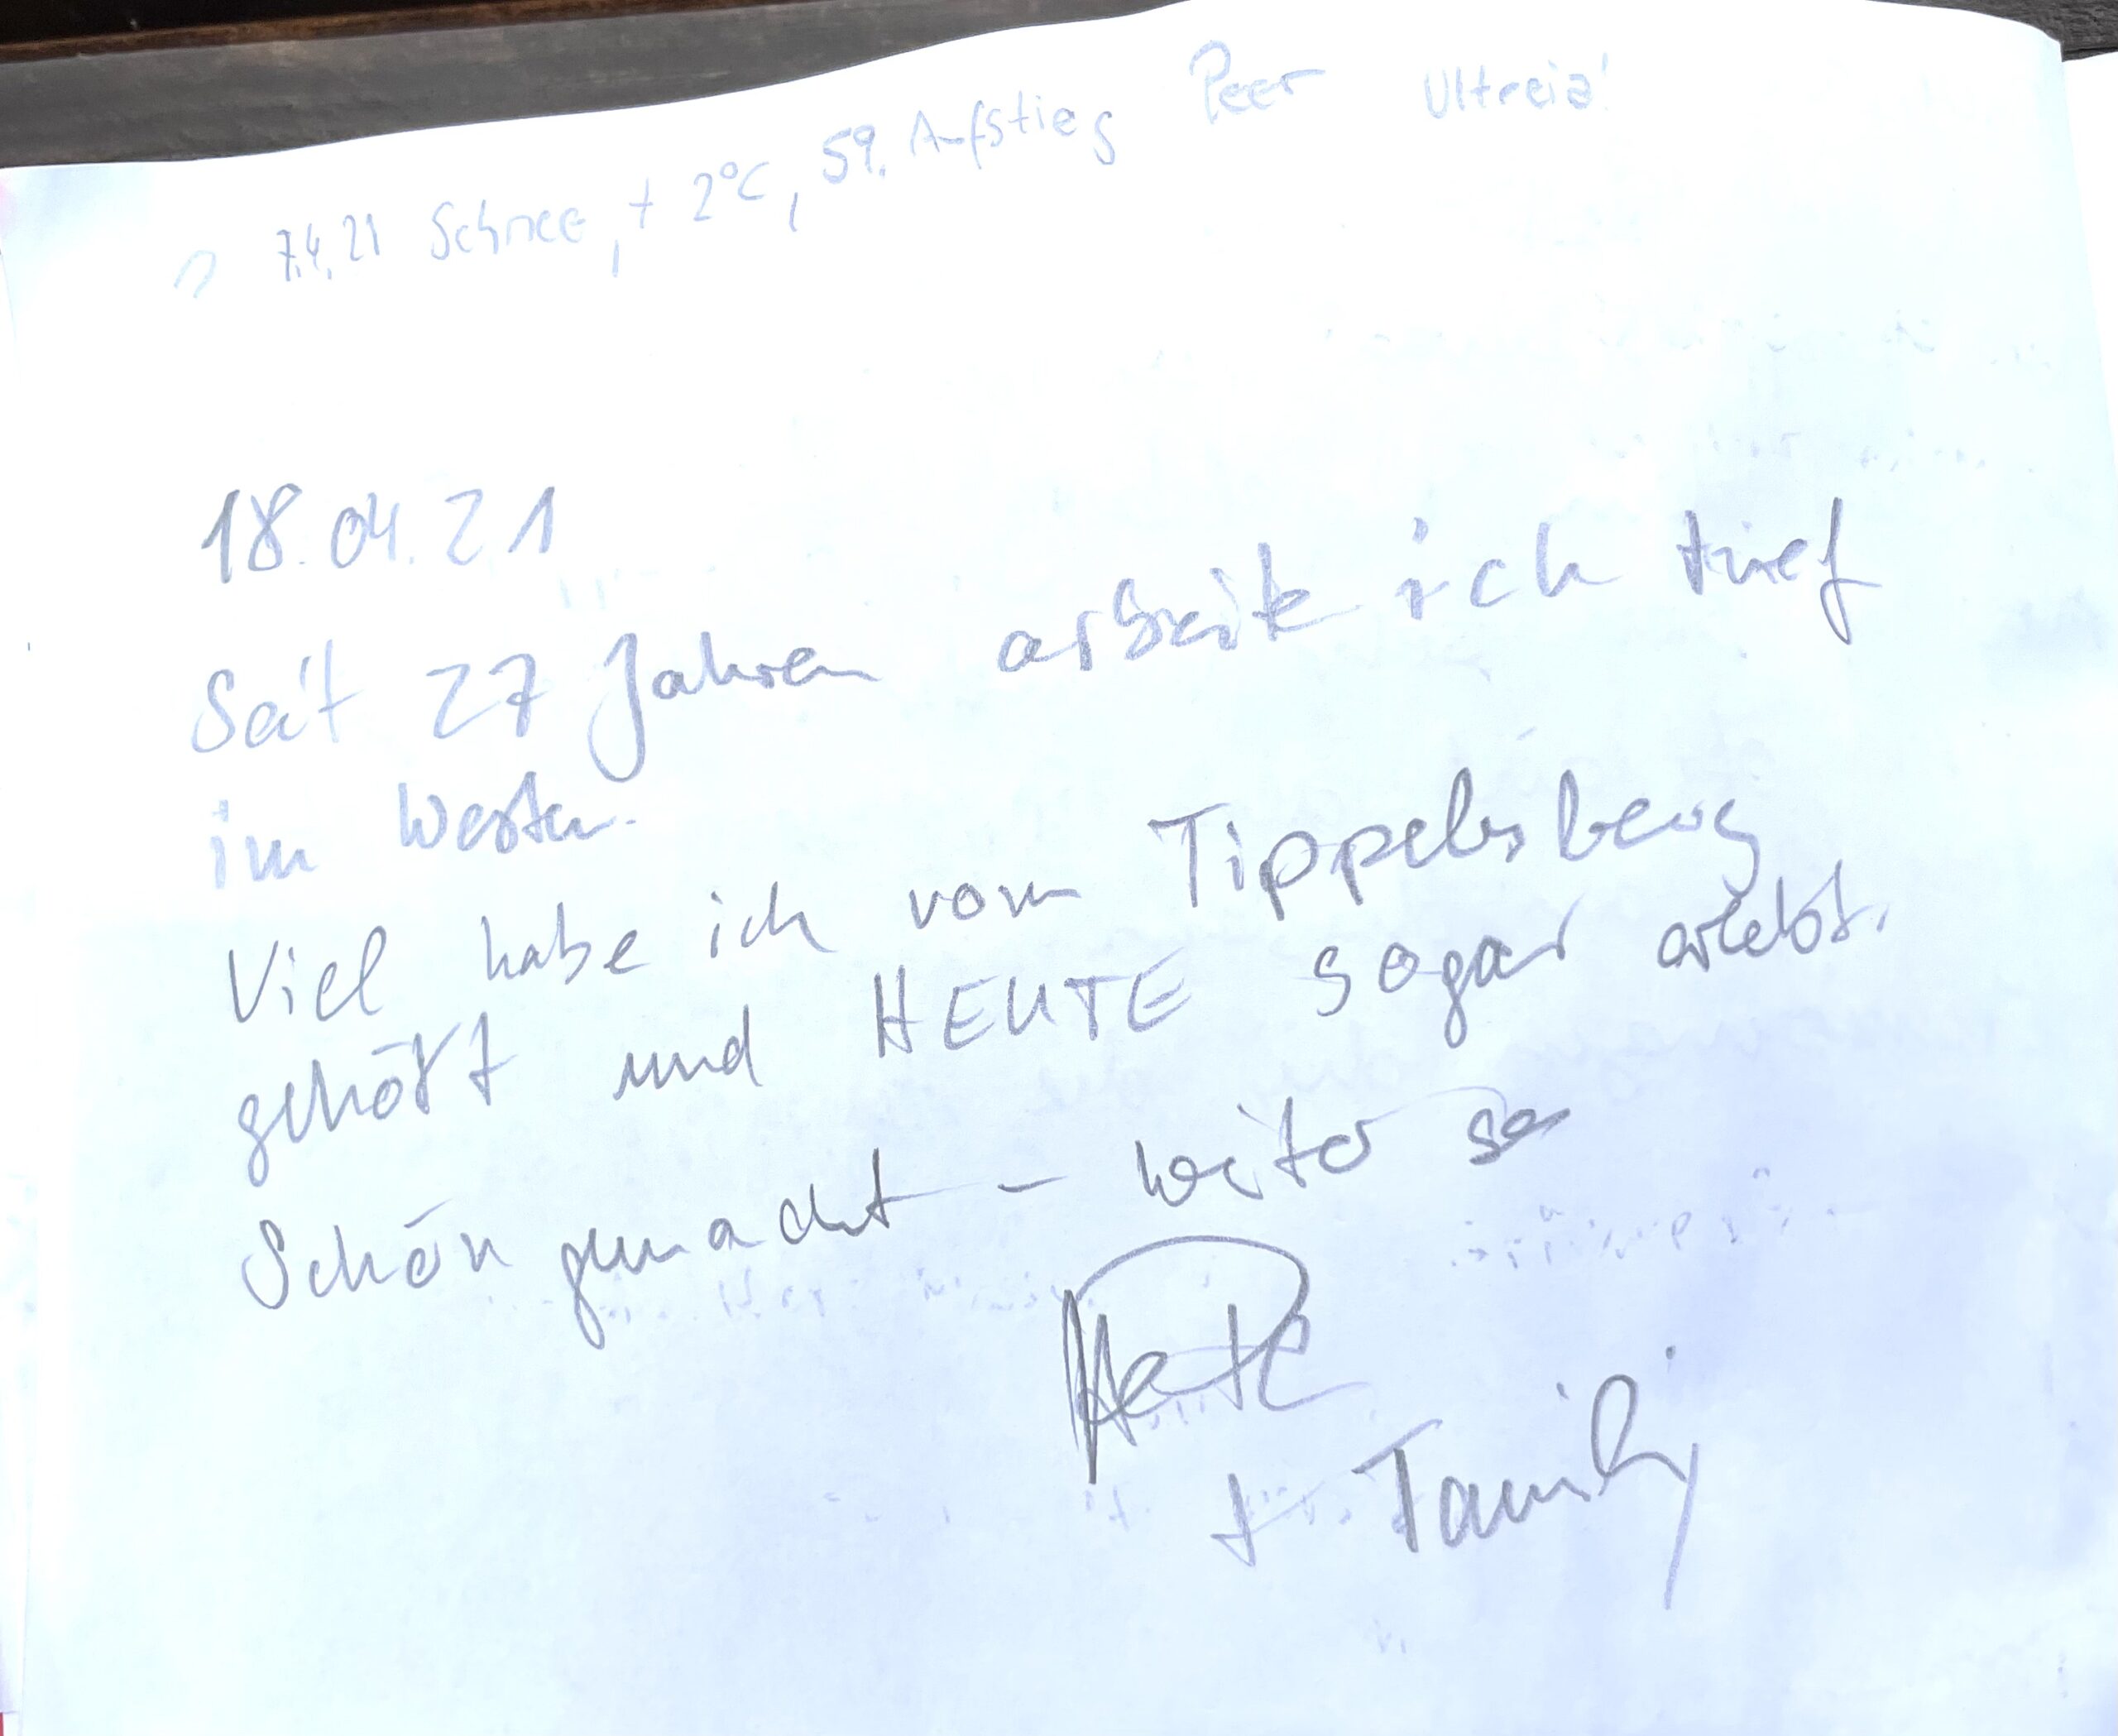 7.4.21 Schnee, + 2°C, 59. Aufstieg Peer Ultreia!
18.04.21
Seit 27 Jahren arbeite ich tief
im Westen.
Viel habe ich vom Tippelsberg
gehört und HEUTE sogar erlebt.
Schön gemacht - weiter so
+ Family